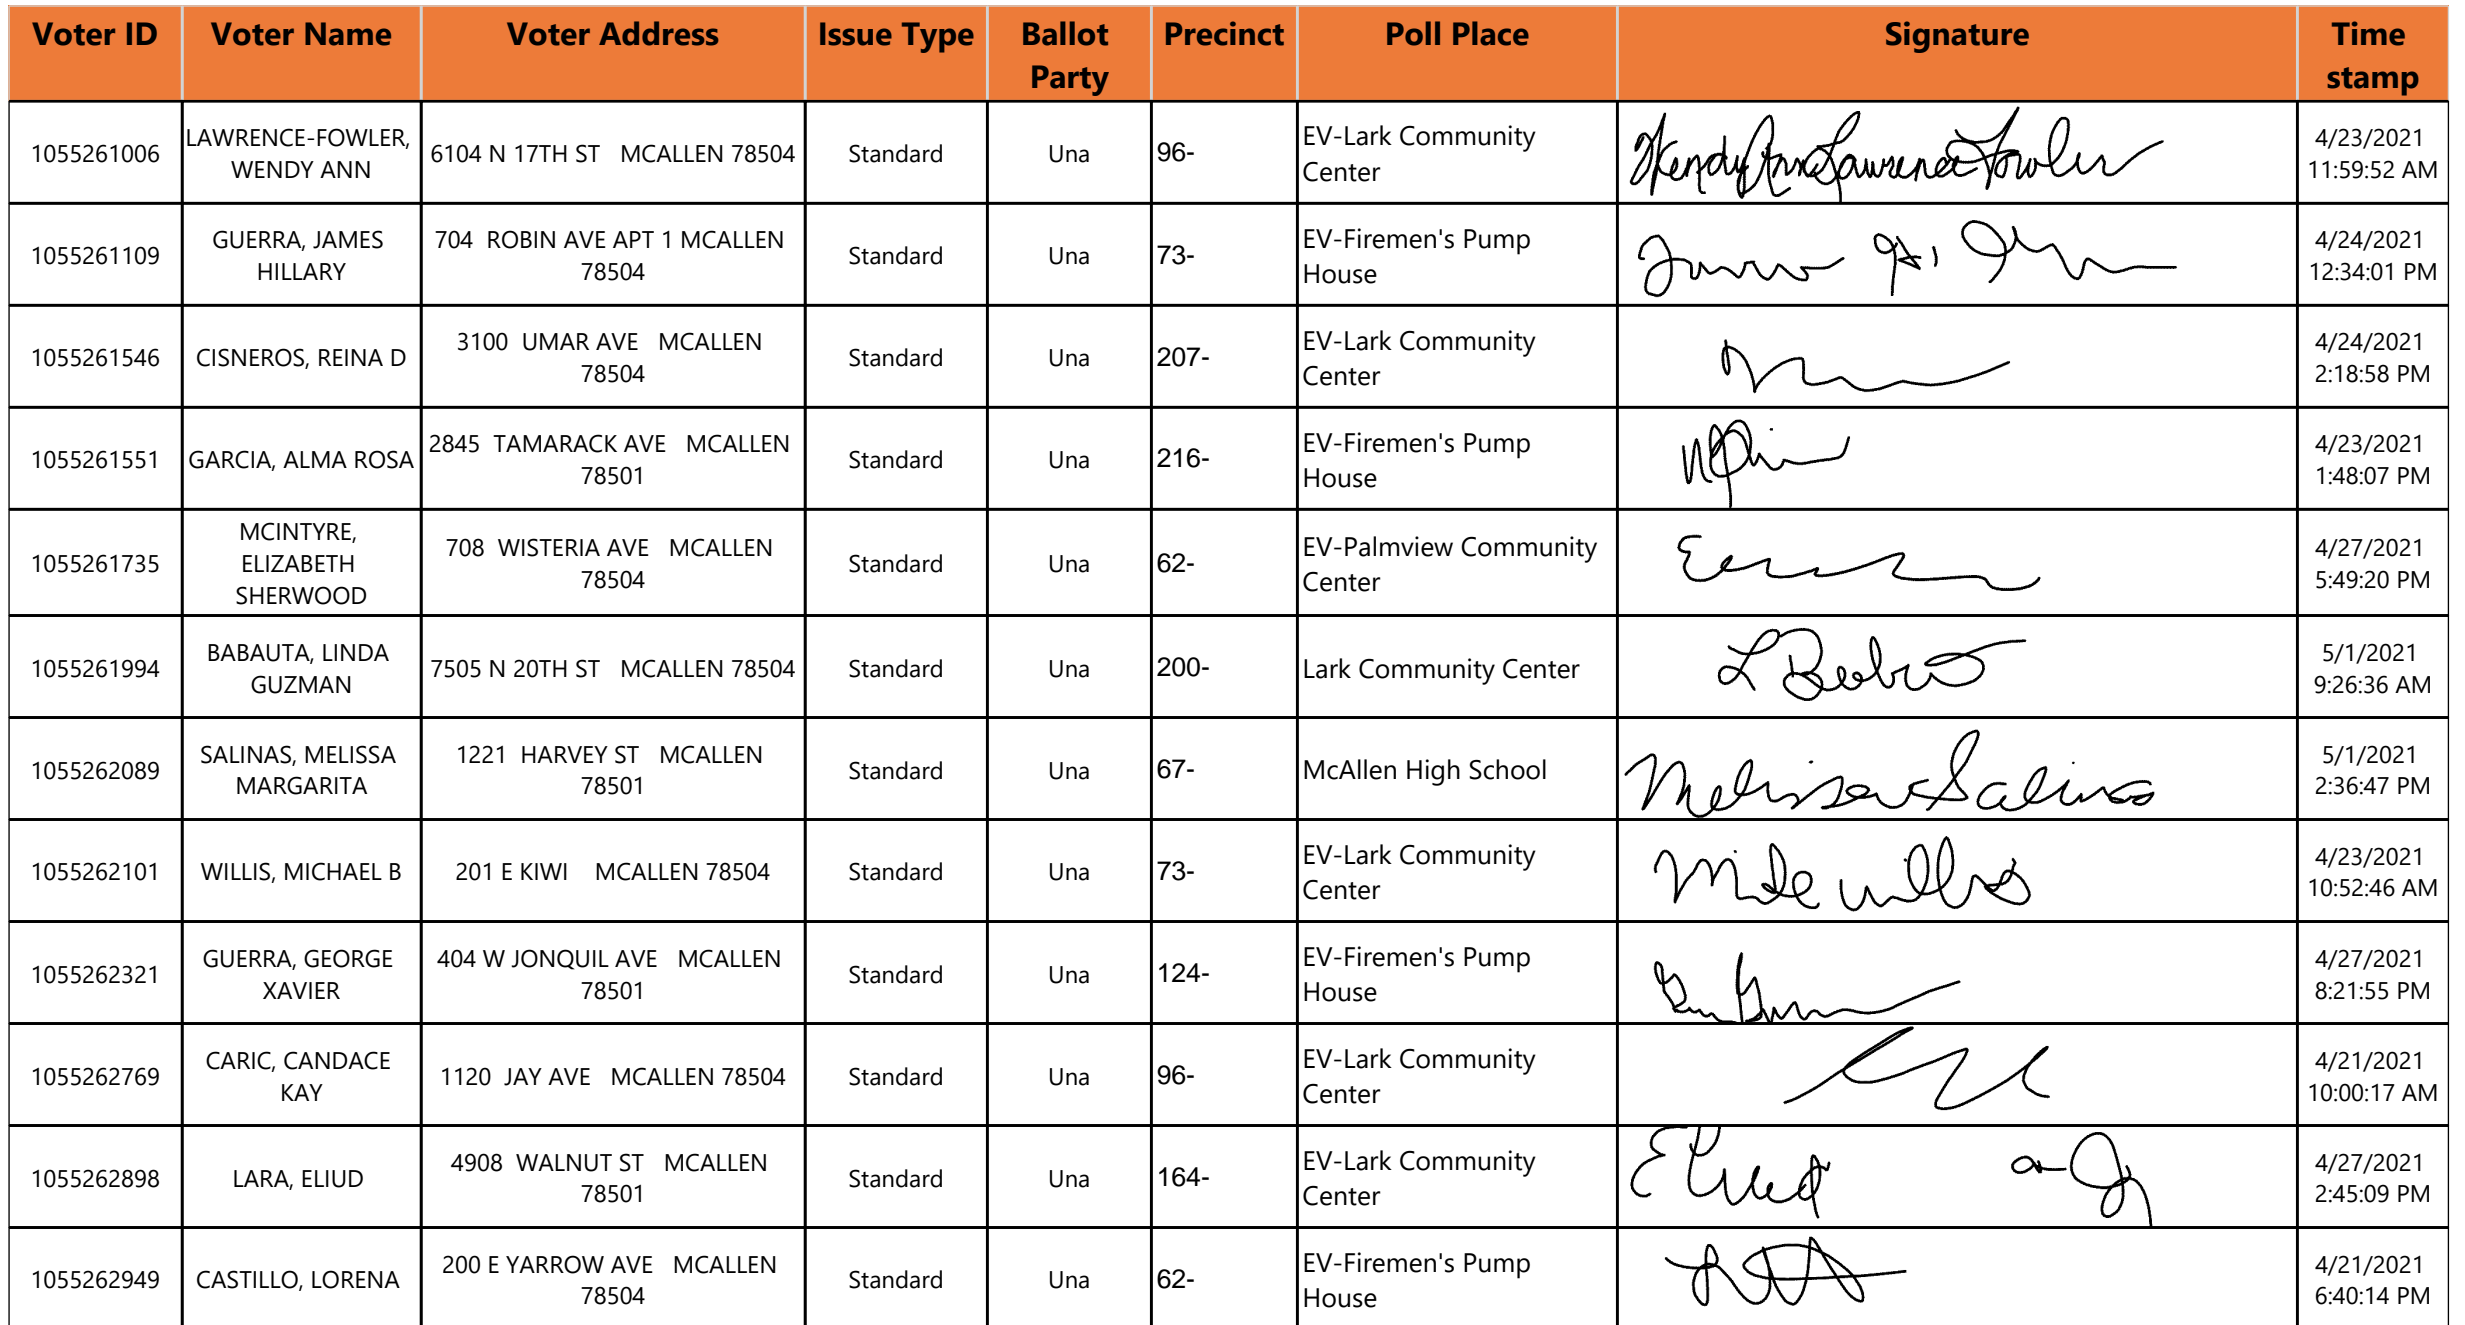 Voter ID Voter Name Voter Address Issue Type Ballot Party Precinct Poll Place Signature Time stamp
1055261006 LAWRENCE-FOWLER, WENDY ANN 6104 N 17TH ST MCALLEN 78504 Standard Una 96- EV-Lark Community Center Wendy Ann Lawrence Fowler 4/23/2021 11:59:52 AM
1055261109 GUERRA, JAMES HILLARY 704 ROBIN AVE APT 1 MCALLEN 78504 Standard Una 73- EV-Firemen's Pump House 4/24/2021 12:34:01 PM
1055261546 CISNEROS, REINA D 3100 UMAR AVE MCALLEN 78504 Standard Una 207- EV-Lark Community Center 4/24/2021 2:18:58 PM
1055261551 GARCIA, ALMA ROSA 2845 TAMARACK AVE MCALLEN 78501 Standard Una 216- EV-Firemen's Pump House 4/23/2021 1:48:07 PM
1055261735 MCINTYRE, ELIZABETH SHERWOOD 708 WISTERIA AVE MCALLEN 78504 Standard Una 62- EV-Palmview Community Center 4/27/2021 5:49:20 PM
1055261994 BABAUTA, LINDA GUZMAN 7505 N 20TH ST MCALLEN 78504 Standard Una 200- Lark Community Center 5/1/2021 9:26:36 AM
1055262089 SALINAS, MELISSA MARGARITA 1221 HARVEY ST MCALLEN 78501 Standard Una 67- McAllen High School Melissa Salinas 5/1/2021 2:36:47 PM
1055262101 WILLIS, MICHAEL B 201 E KIWI MCALLEN 78504 Standard Una 73- EV-Lark Community Center Mike Willis 4/23/2021 10:52:46 AM
1055262321 GUERRA, GEORGE XAVIER 404 W JONQUIL AVE MCALLEN 78501 Standard Una 124- EV-Firemen's Pump House 4/27/2021 8:21:55 PM
1055262769 CARIC, CANDACE KAY 1120 JAY AVE MCALLEN 78504 Standard Una 96- EV-Lark Community Center 4/21/2021 10:00:17 AM
1055262898 LARA, ELIUD 4908 WALNUT ST MCALLEN 78501 Standard Una 164- EV-Lark Community Center Eliud 4/27/2021 2:45:09 PM
1055262949 CASTILLO, LORENA 200 E YARROW AVE MCALLEN 78504 Standard Una 62- EV-Firemen's Pump House 4/21/2021 6:40:14 PM